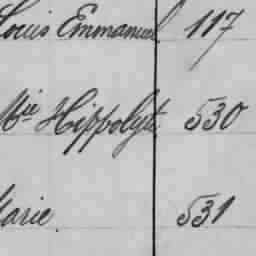 Louis Emmanuel 117
Mie Hippolyte 530
Marie 531